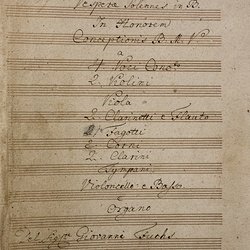 Vespera Solennes in B.
In Honorem
Conceptionis B. M. V.
a
4 Voci Conc:
2. Violini
Viola
2. Clarinetti e Flauto
2 Fagotti
2. Corni
2. Clarini
Tympani
Violoncello e Basso
e
Organo
Del Sig: Giovanni Fuchs